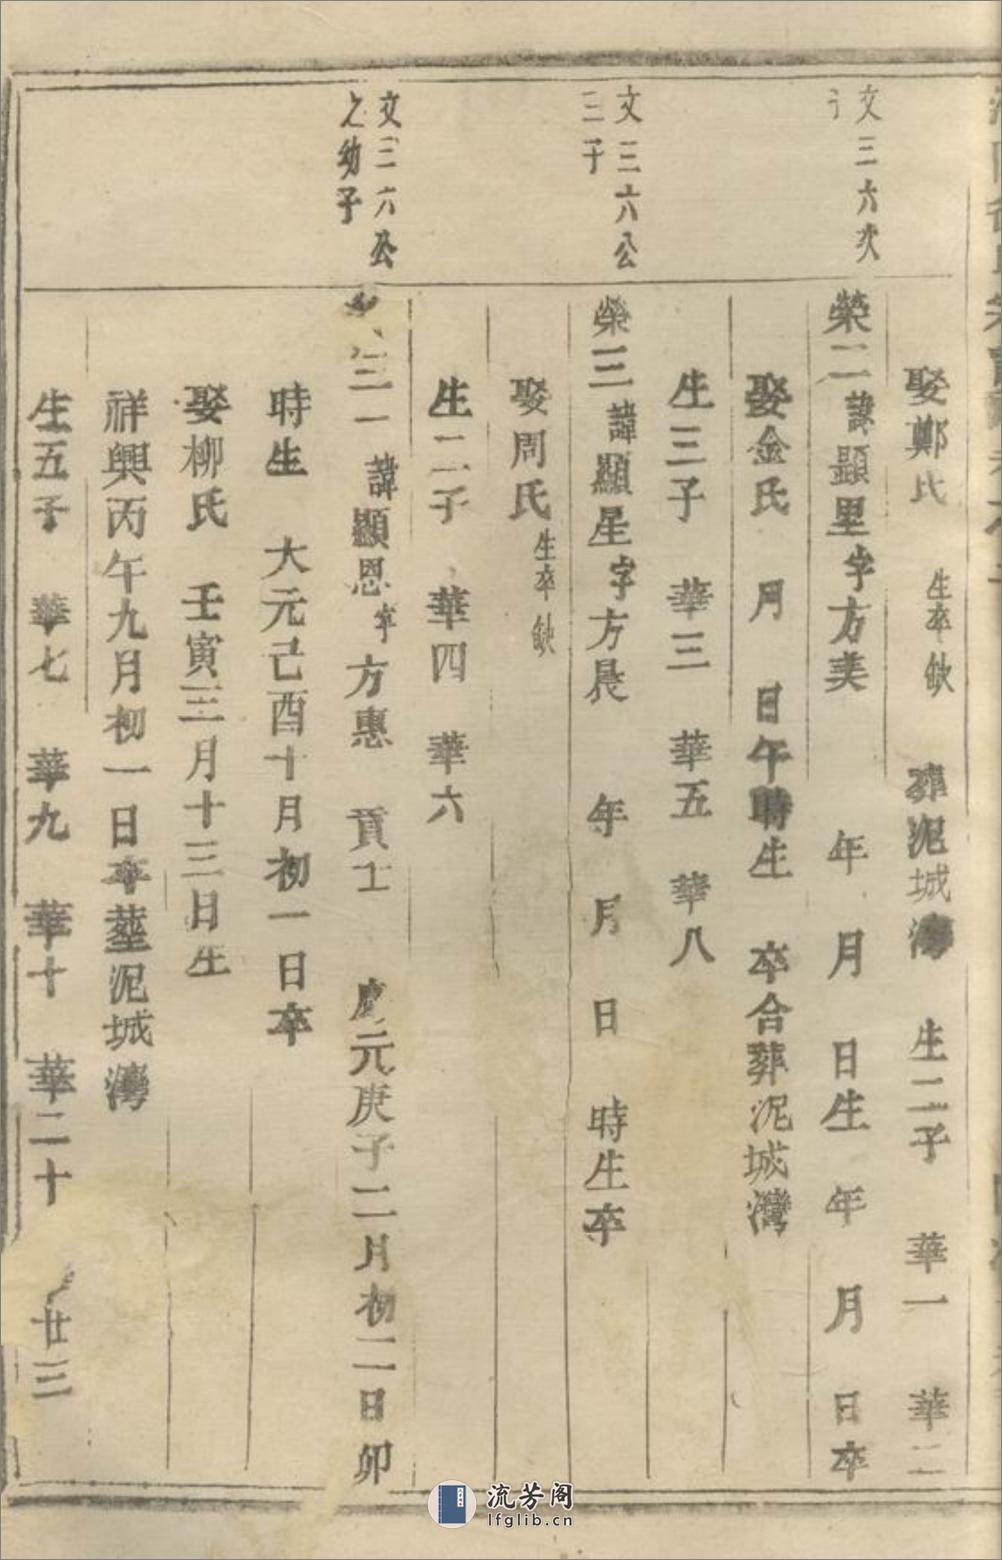 娶鄭氏 生卒缺 葬泥城灣 生二子 華一 華二
文三六次
子
榮二諱顯里字方美 年 月 日生 年 月 日卒
娶金氏 月 日午時生 卒合葬泥城灣
生三子 華三 華五 華八
文三六公
三子
榮三諱顯星字方晨 年 月 日 時生卒
娶周氏 生卒缺
生二子 華四 華六
文三六公
之幼子
三一諱顯恩字方惠 貢士 慶元庚子二月初二日卯
時生 大元己酉十月初一日卒
娶柳氏 壬寅三月十三日生
祥興丙午九月初一日卒塟泥城灣
生五子 華七 華九 華十 華二十 廿三
流芳阁
lfglib.cn